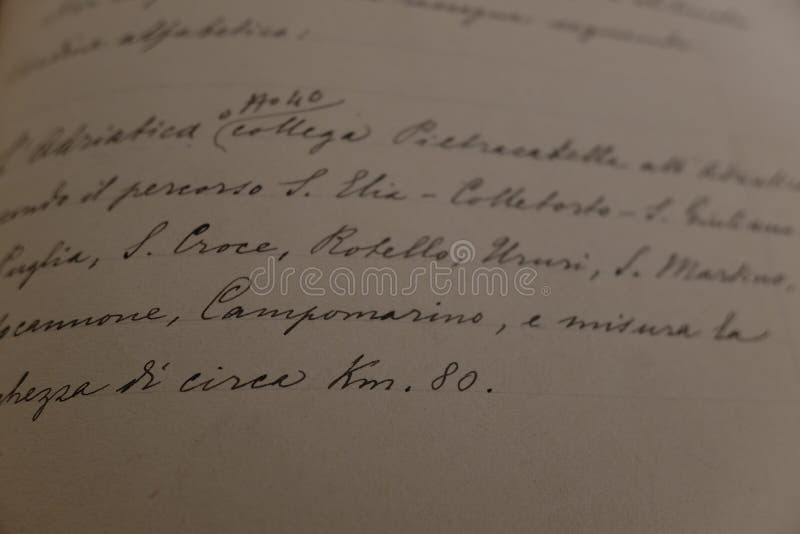 alfabetico:
A° 40
L'Adriatica (collega Pietracatella all'
il percorso S. Elia - Colletorto - S. Giuliano
Puglia, S. Croce, Rotello, Ururi, S. Martino,
cannone, Campomarino, e misura la
ghezza di circa Km. 80.
dreamstime